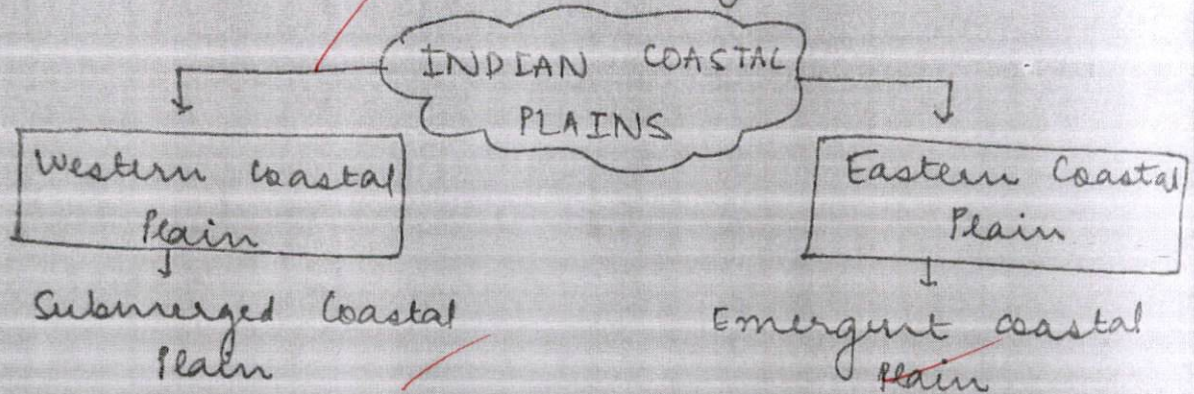 INDIAN COASTAL
PLAINS
Western Coastal
Plain
Eastern Coastal
Plain
Submerged Coastal
Plain
Emergent coastal
plain